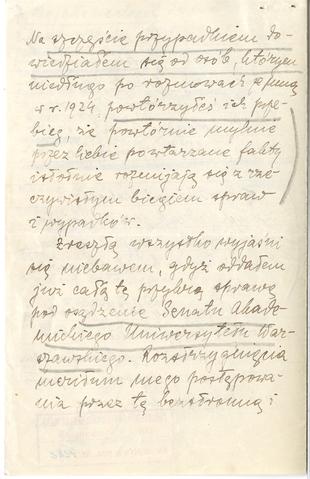 Na szczęście przypadkiem do-
wiedziałem się od osób, którym
niedługo po rozmowach ze mną
w r. 1924, powtórzyłeś ich prze-
bieg, że powtórnie mylnie
przez Ciebie powtarzane fakty
istotnie rozmijają się z rze-
czywistym biegiem spraw
i wypadków.
Zresztą wszystko wyjaśni
się niebawem, gdyż oddałem
już całą tę przykrą sprawę
pod osądzenie Senatu Akade-
mickiego Uniwersytetu War-
szawskiego. Rozstrzygnięcia
meritum mego postępowa-
nia przez tę bezstronną i